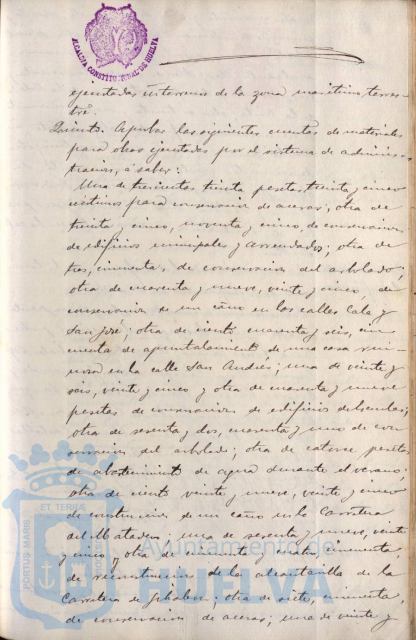 ALCALDIA CONSTITUCIONAL DE HUELVA
ejecutadas en terrenos de la zona maritimo, terres-
tre.
Quinto. Aprobar las siguientes cuentas de materiales
para obras ejecutadas por el sistema de adminis-
tracion, á saber:
Una de trescientas treinta pesetas, treinta y cinco
céntimos para conservacion de aceras; otra de
treinta y cinco, noventa y cinco, de conservacion
de edificios municipales y arrendados; otra de
tres, cincuenta, de conservacion del arbolado;
otra de cuarenta y nueve, veinte y cinco de
conservacion de un caño en las calles Cala y
San José; otra de ciento cuarenta y seis, cin-
cuenta de apuntalamiento de una casa rui-
nosa en la calle San Andrés; una de veinte y
seis, veinte y cinco y otra de cuarenta y nueve
pesetas de conservacion de edificios de Escuelas;
otra de sesenta y dos, cuarenta y uno de con-
servacion del arbolado; otra de catorce pesetas
de abastecimiento de agua durante el verano;
otra de ciento veinte y nueve, veinte y cinco
de construccion de un caño en la Carretera
del Matadero; una de sesenta y nueve, veinte
y cinco y otra de cincuenta,
de reconstruccion de la alcantarilla de la
Carretera de Gibraleon; otra de siete, cincuenta,
de conservacion de aceras; una de veinte y
PORTUS MARIS ET TERRAE
Ayuntamiento de
HUELVA